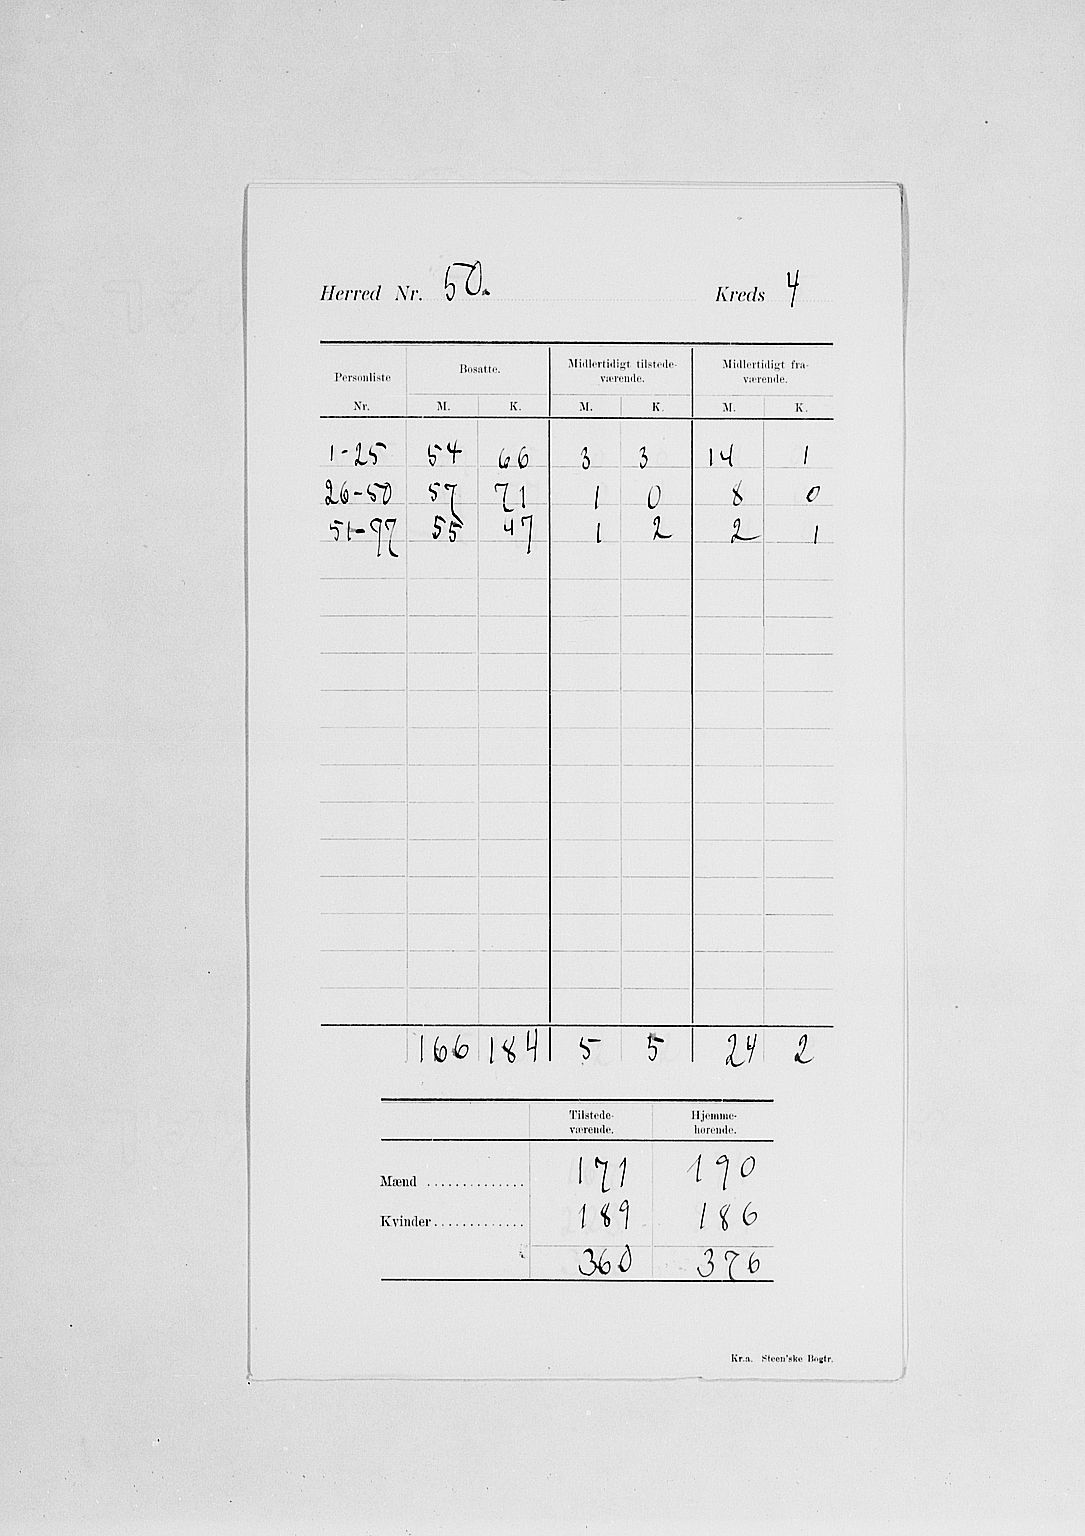 Herred Nr. 50. Kreds 4
Personliste Bosatte. Midlertidigt tilstede- Midlertidigt fra-
værende. værende.
Nr. M. K. M. K. M. K.
1-25 54 66 3 3 14 1
26-50 57 71 1 0 8 0
51-77 55 47 1 2 2 1
166 184 5 5 24 2
Tilstede- Hjemme-
værende. hørende.
Mænd .............. 171 190
Kvinder............. 189 186
360 376
Kr.a. Steen'ske Bogtr.